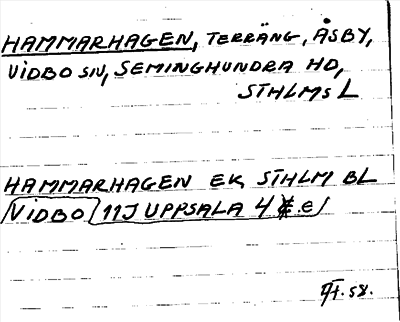 HAMMARHAGEN, TERRÄNG, ÅSBY,
VIDBO SN, SEMINGHUNDRA HD,
STHLMS L
HAMMARHAGEN EK, STHLM BL
VIDBO 11J UPPSALA 4 e
58.